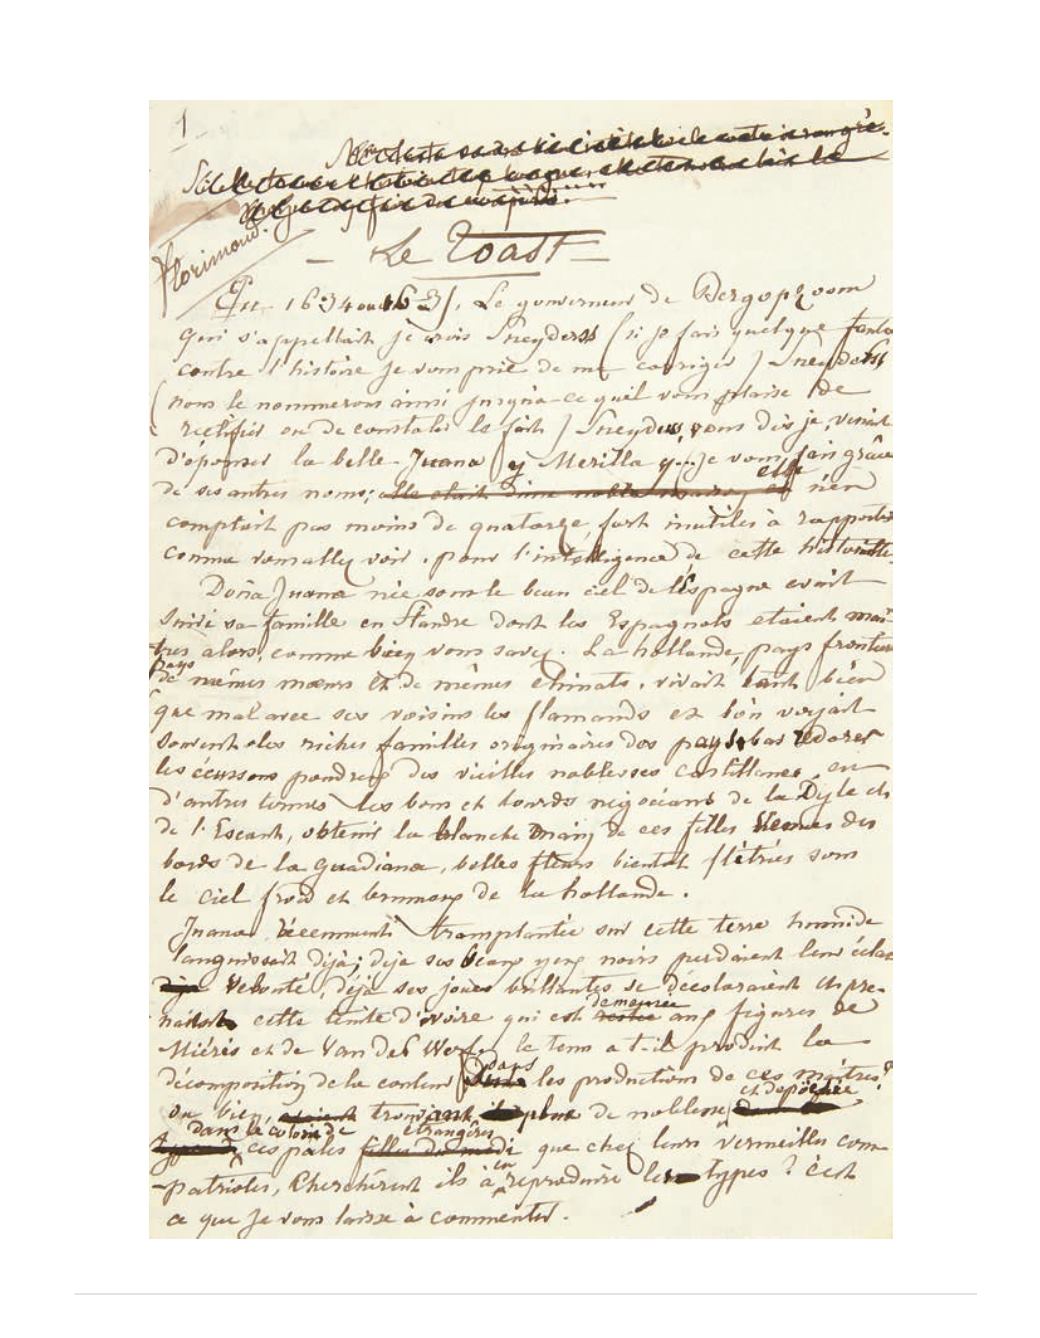 1
Florimond.
— Le Toast —
En 1634 ou 1635. Le gouverneur de Bergopzoom
qui s'appellait je crois Sneyders (si je fais quelque faute
contre l'histoire je vous prie de me corriger) Sneyders,
(nous le nommerons ainsi jusqu'a ce qu'il vous plaise de
rectifier ou de constater le fait) Sneyders, vous dis je, venait
d'épouser la belle Juana y Merilla y... je vous fais grâce
de ses autres noms; elle etait d'une noble et elle n'en
comptait pas moins de quatorze, fort inutiles à rapporter
comme vous allez voir, pour l'intelligence de cette historiette.
Doña Juana née sous le beau ciel de l'Espagne avait
suivi sa famille en Flandre dont les Espagnols etaient maî-
tres alors, comme bien vous savez. La hollande, pays frontière
pays de mêmes mœurs et de mêmes climats, vivait tant bien
que mal avec ses voisins les flamands et l'on voyait
souvent les riches familles originaires des pays bas redorer
les écussons poudreux des vieilles noblesses castillanes, en
d'autres termes les bons et lourds négociants de la Dyle et
de l'Escaut, obtenir la blanche main de ces filles venues des
bords de la guadiana, belles fleurs bientôt flétries sous
le ciel froid et brumeux de la hollande.
Juana récemment transplantée sur cette terre humide
languissait déjà; déja ses beaux yeux noirs perdaient leur éclat
velouté, déjà ses joues brillantes se décoloraient et pre-
naient cette teinte d'ivoire qui est restée demeurée aux figures de
Miéris et de Van der Werf. le tems a t-il produit la
décomposition de la couleur dans les productions de ces maîtres?
ou bien, trouvant plus de noblesse et de poësie
dans le coloris de ces pâles filles du midi etrangères que chez leurs vermeilles com-
patriotes, Cherchèrent ils à en reproduire les types? c'est
ce que je vous laisse à commenter.